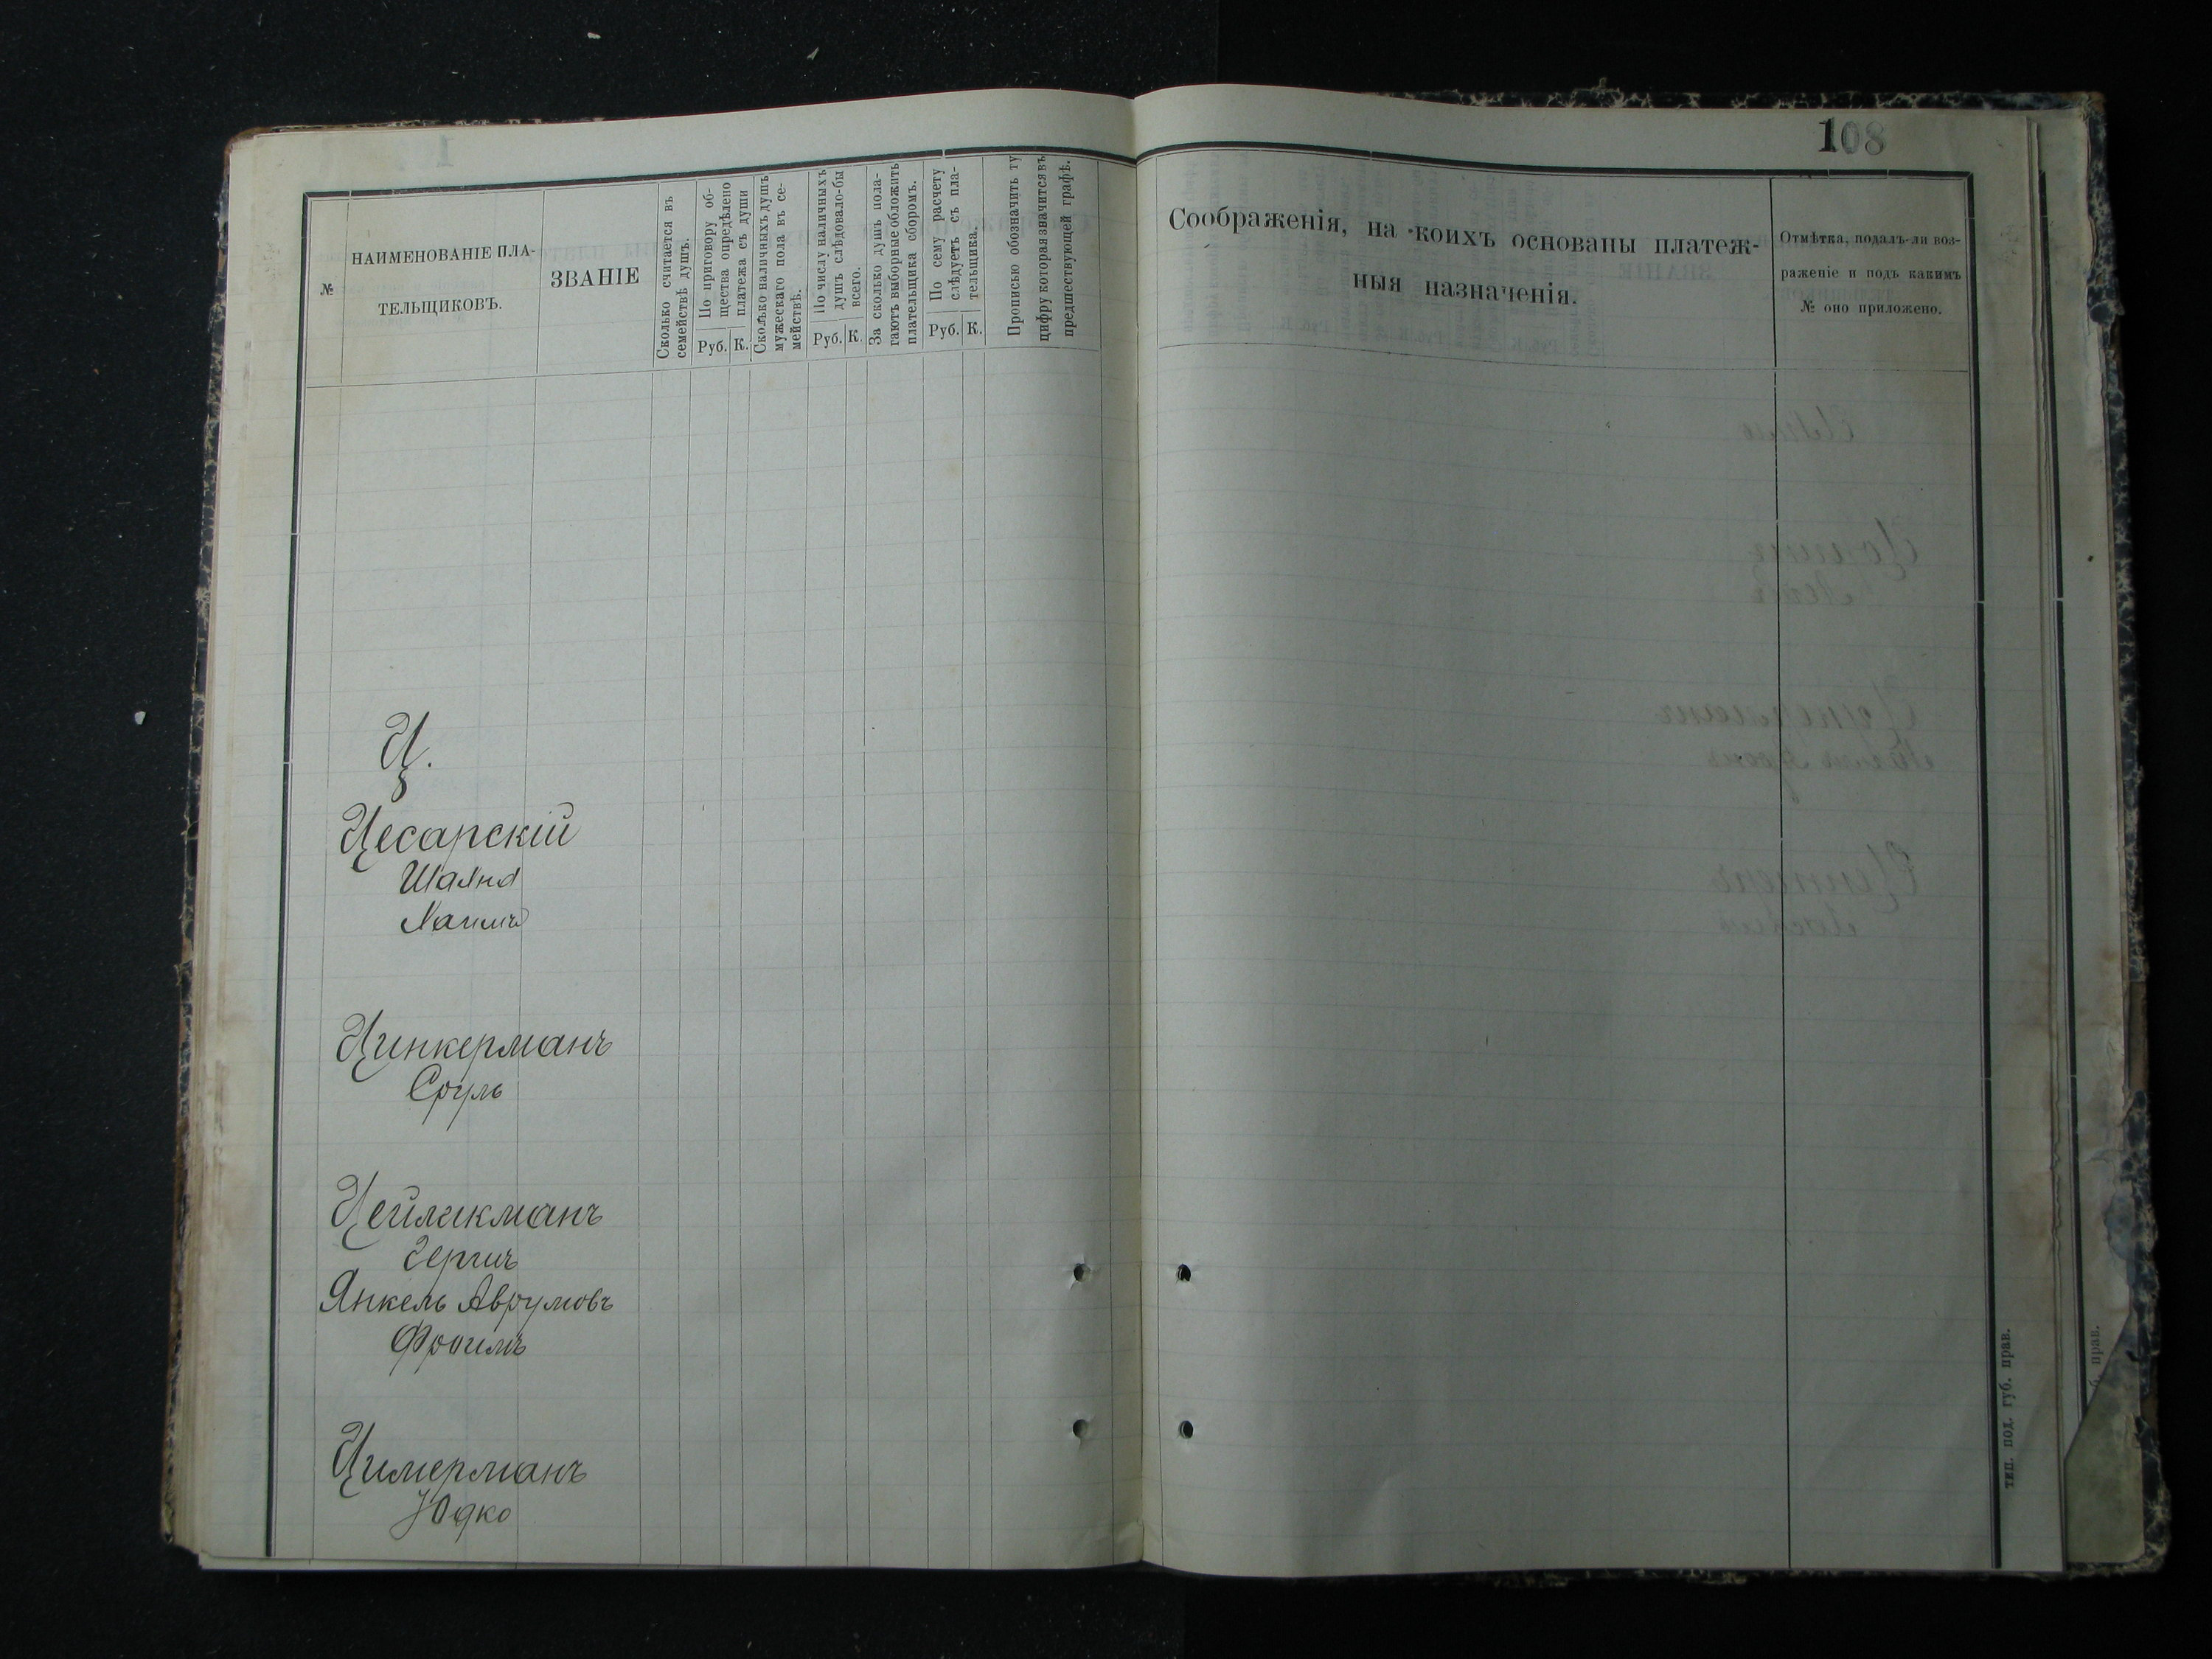 108
№
НАИМЕНОВАНІЕ ПЛА-
ТЕЛЬЩИКОВЪ.
ЗВАНІЕ
Сколько считается въ
семействѣ душъ.
По приговору об-
щества опредѣлено
платежа съ души
Руб. К.
Сколько наличныхъ душъ
мужескаго пола въ се-
мействѣ.
По числу наличныхъ
душъ слѣдовало-бы
всего.
Руб. К.
За сколько душъ пола-
гаютъ выборные обложить
плательщика сборомъ.
По сему расчету
слѣдуетъ съ пла-
тельщика.
Руб. К.
Прописью обозначить ту
цифру которая значится въ
предшествующей графѣ.
Соображенія, на коихъ основаны платеж-
ныя назначенія.
Отмѣтка, подалъ-ли воз-
раженіе и подъ какимъ
№ оно приложено.
Ц.
Цесарскій
Шаяна
Хаимъ
Цинкерманъ
Сруль
Цейликманъ
Гершъ
Янкель Аврумовъ
Фроимъ
Цимерманъ
Юдко
тип. под. губ. прав.
б. прав.